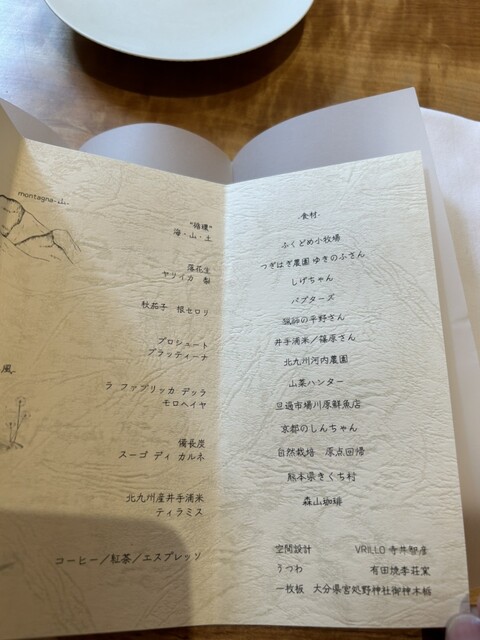 montagna-山-
"循環"
海・山・土
落花生
ヤリイカ 梨
秋茄子 根セロリ
プロシュート
ブラッティーナ
風
ラ ファブリッカ デッラ
モロヘイヤ
備長炭
スーゴ ディ カルネ
北九州産井手浦米
ティラミス
コーヒー／紅茶／エスプレッソ
-食材-
ふくどめ小牧場
つぎはぎ農園 ゆきのふさん
しげちゃん
バブターズ
猟師の平野さん
井手浦米／篠原さん
北九州河内農園
山菜ハンター
旦過市場川原鮮魚店
京都のしんちゃん
自然栽培 原点回帰
熊本県きくち村
森山珈琲
空間設計 VRILLO 寺井智彦
うつわ 有田焼李荘窯
一枚板 大分県宮処野神社御神木栃